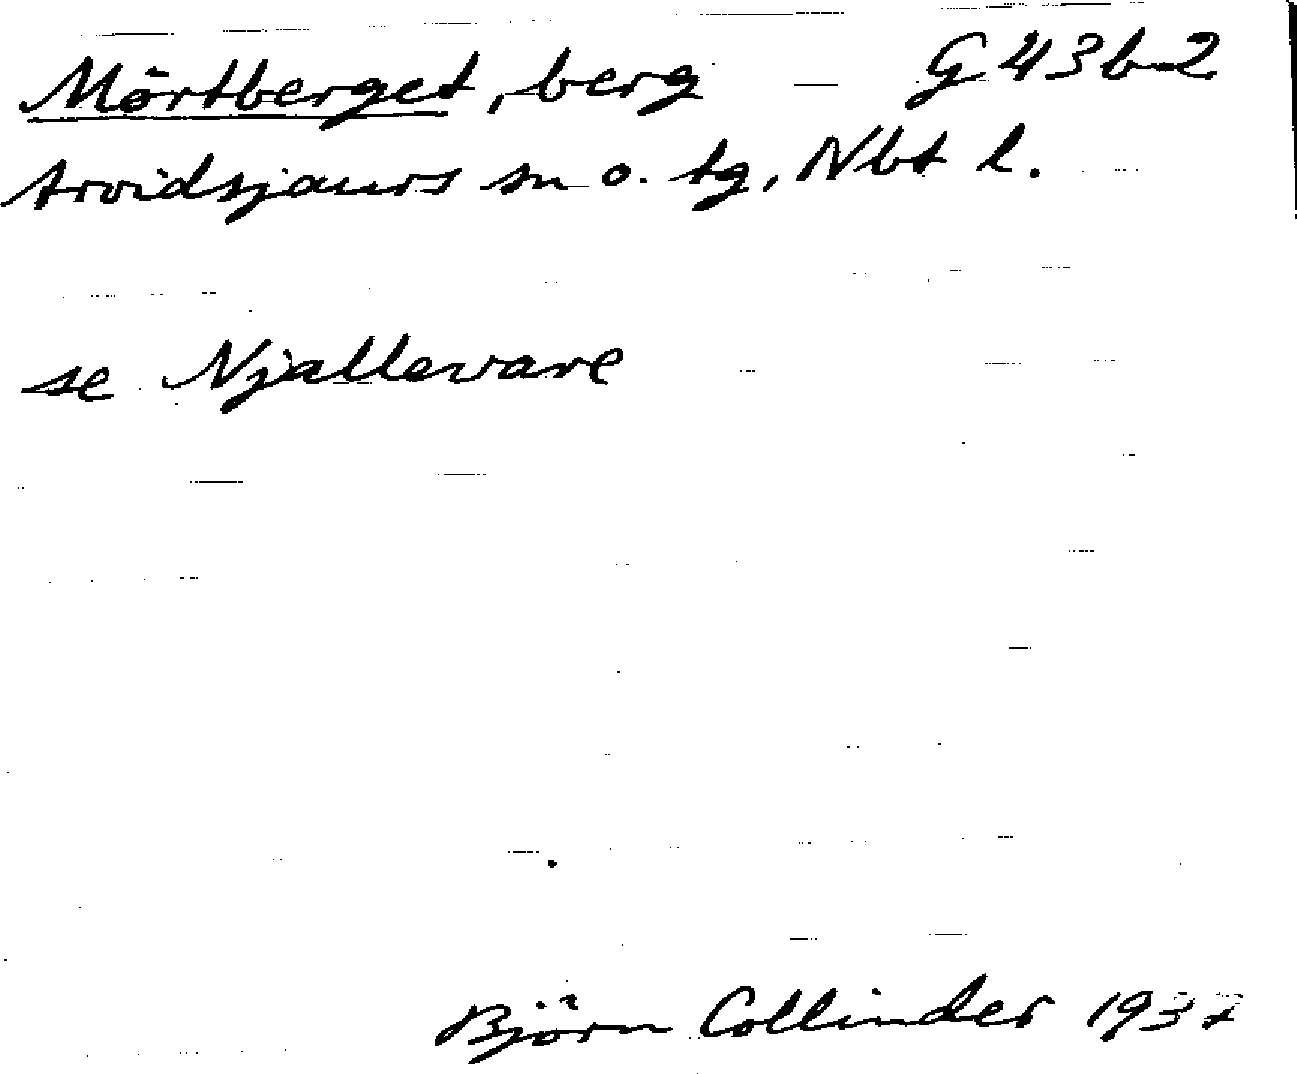 Mörtberget, berg — G 43 b 2
Arvidsjaurs sn o. tg, Nbt l.
se Njallevare
Björn Collinder 1937